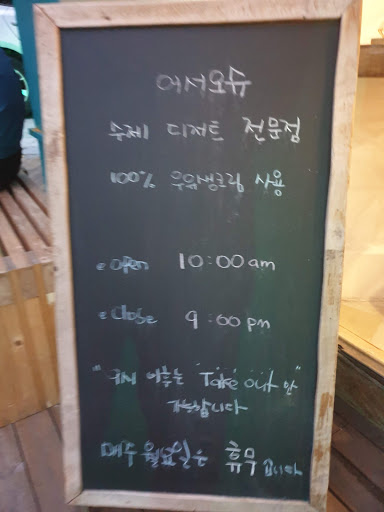 어서오슈
수제 디저트 전문점
100% 우유생크림 사용
open 10:00 am
close 9:00 pm
"9시 이후는 "Take out 만"
가능합니다
매주 월요일은 휴무 입니다